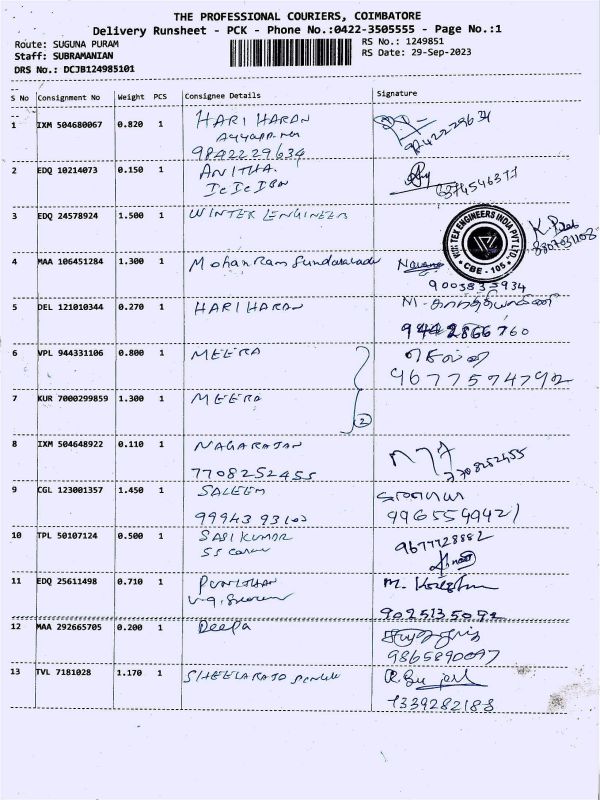 THE PROFESSIONAL COURIERS, COIMBATORE
Delivery Runsheet - PCK - Phone No.:0422-3505555 - Page No.:1
Route: SUGUNA PURAM RS No.: 1249851
Staff: SUBRAMANIAN RS Date: 29-Sep-2023
DRS No.: DCJB124985101
S No Consignment No Weight PCS Consignee Details Signature
1 IXM 504680067 0.820 1 HARI HARAN
9842229634
9842229634
2 EDQ 10214073 0.150 1 ANITHA.
3 EDQ 24578924 1.500 1 WINTEX ENGINEER
TEX ENGINEERS INDIA PVT LTD.
CBE - 105
4 MAA 106451284 1.300 1 Mohan Ram Sundaravadi
9003833934
5 DEL 121010344 0.270 1 HARI HARAN
9442866760
6 VPL 944331106 0.800 1 MEERA
9677574792
7 KUR 7000299859 1.300 1 MEERA
2
8 IXM 504648922 0.110 1 NAGARAJAN
7708252455 7708252455
9 CGL 123001357 1.450 1 SALEEM
99943 93102 9965549421
10 TPL 50107124 0.500 1 SASI KUMAR 9677728882
11 EDQ 25611498 0.710 1 PUNITHAN
9025135092
12 MAA 292665705 0.200 1 Deepa
9865890097
13 TVL 7181028 1.170 1 SHEELA
7339282188